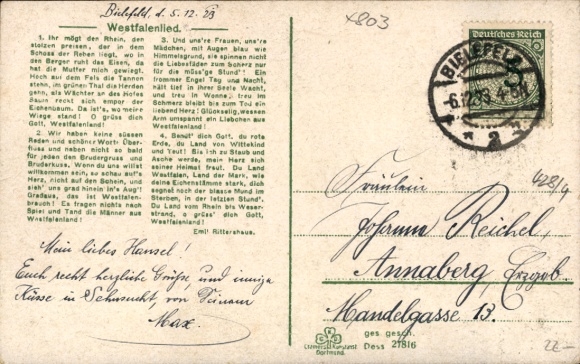 Bielefeld, d. 5. 12. 23
Westfalenlied.
1. Ihr mögt den Rhein, den
stolzen preisen, der in dem
Schoss der Reben liegt, wo in
den Berger ruht das Eisen, da
hat die Mutter mich gewiegt.
Hoch auf dem Fels die Tannen
stehn, im grünen Thal die Herden
gehn, als Wächter an des Hofes
Saum reckt sich empor der
Eichenbaum. Da ist's, wo meine
Wiege stand! O grüss dich
Gott, Westfalenland!
2. Wir haben keine süssen
Reden und schöner Wort Über-
fluss und haben nicht so bald
für jeden den Brudergruss und
Bruderkuss. Wenn du uns willst
willkommen sein, so schau auf's
Herz, nicht auf den Schein, und
sieh' uns grad hinein in's Aug'
Gradaus, das ist Westfalen-
brauch! Es fragen nichts nach
Spiel und Tand die Männer aus
Westfalenland!
3. Und uns're Frauen, uns're
Mädchen, mit Augen blau wie
Himmelsgrund, sie spinnen nicht
die Liebesfäden zum Scherz nur
für die müss'ge Stund'! Ein
frommer Engel Tag und Nacht,
hält tief in ihrer Seele Wacht,
und treu in Wonne, treu im
Schmerz bleibt bis zum Tod ein
liebend Herz! Glückselig, wessen
Arm umspannt ein Liebchen aus
Westfalenland!
4. Behüt' dich Gott, du rote
Erde, du Land von Wittekind
und Teut! Bis ich zu Staub und
Asche werde, mein Herz sich
seiner Heimat freut. Du Land
Westfalen, Land der Mark, wie
deine Eichenstämme stark, dich
segnet noch der blasse Mund im
Sterben, in der letzten Stund'.
Du Land vom Rhein bis Weser-
strand, o grüss' dich Gott,
Westfalenland!
Emil Rittershaus.
Mein liebes Hansel!
Euch recht herzliche Grüße, und innige
Küsse in Sehnsucht von Deinem
Max.
x803
Deutsches Reich
BIELEFELD
-6.12.23
* 2
Fräulein
Johanna Reichel,
428/4
Annaberg Erzgeb.
Mandelgasse 13.
ges. gesch.
Dess 27816
Cramers Kunstanst
Dortmund.
22-